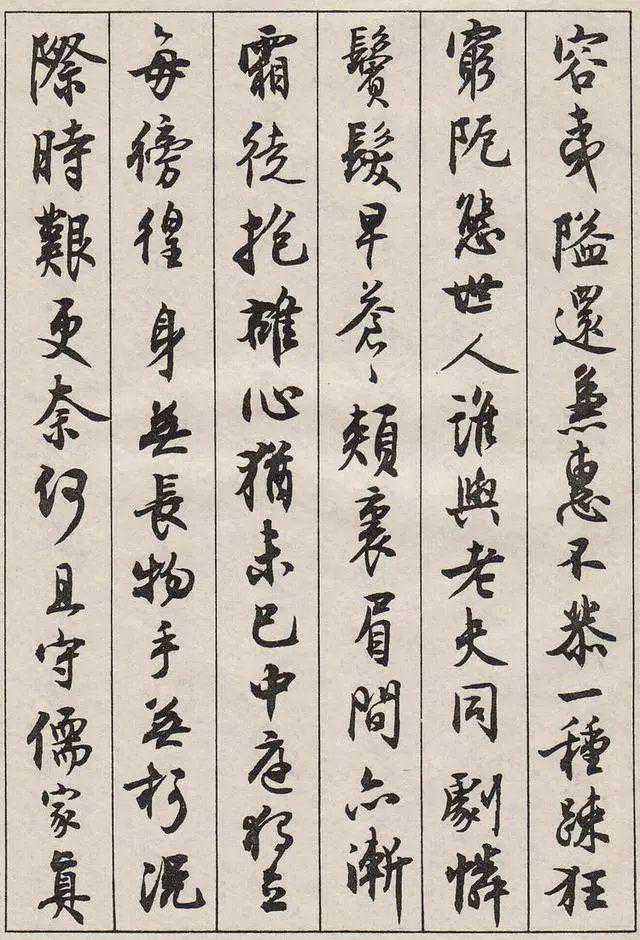 容夷隘還兼惠不恭一種疎狂
窮阨態世人誰與老夫同劇憐
鬢髮早蒼〻頰裏眉間亦漸
霜徒抱雄心猶未已中庭獨立
每傍徨身無長物手無柯況
際時艱更奈何且守儒家真